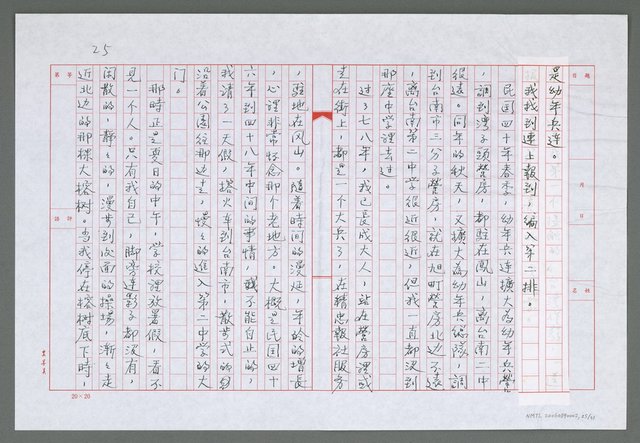 25
是幼年兵連。
我找到連上報到，編入第二排。
民国四十年春季，幼年兵連擴大為幼年兵營
，調到灣子頭營房，都駐在鳳山，離台南二中
很遠。同年的秋天，又擴大為幼年兵總隊，調
到台南市三分子營房，就在旭町營房北边不遠
，離台南第二中学很近很近，但我一直都沒到
那座中学裡去过。
过了七八年，我已長成大人，站在營房裡或
走在街上，都是一个大兵了，在精忠報社服务
，駐地在凤山。隨着時间的漫延，年龄的增長
，心裡非常怀念那个老地方。大概是民国四十
六年到四十八年中间的事情，我不能自止的，
我请了一天假，搭火车到台南市，散步式的
沿着公園徑那边走，慢々的進入第二中学的大
门。
那時正是夏日的中午，学校裡放暑假，看不
見一个人。只有我自己，脚旁連影子都沒有，
闲散的，静々的，漫步到後面的操場，漸々走
近北边的那棵大榕树。当我停在榕树底下時，
題目
月
日
姓名
第等
評語
20×20
NMTL 20060890002, 25/41